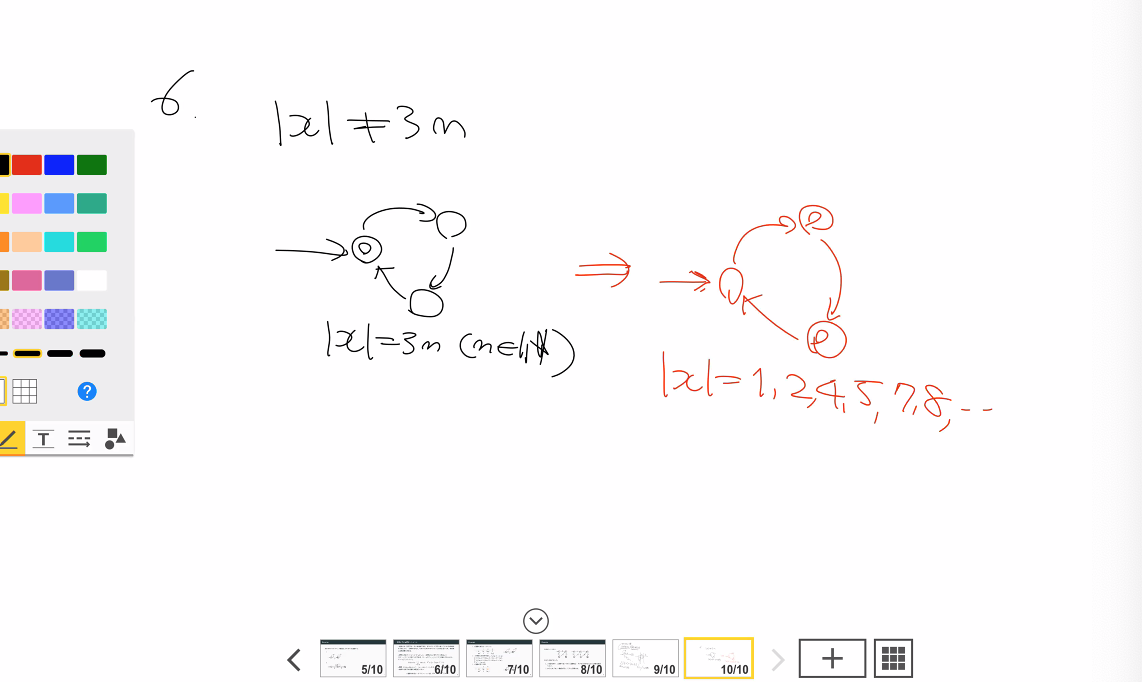 6.
|x| ≠ 3n
|x| = 3n (n∈ℕ)
⇒
|x| = 1, 2, 4, 5, 7, 8, ...
T
?
5/10
6/10
7/10
8/10
9/10
10/10